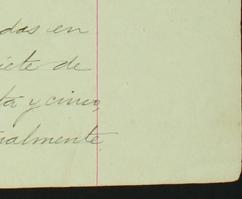 das en
iete de
ta y cinco,
ialmente